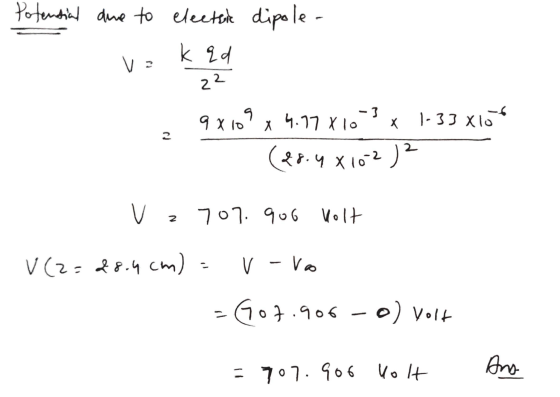 Potential due to electric dipole -
V = k qd / z²
= 9 x 10⁹ x 4.77 x 10⁻³ x 1.33 x 10⁻⁶ / (28.4 x 10⁻²)²
V = 707.906 Volt
V(z = 28.4 cm) = V - V∞
= (707.906 - 0) Volt
= 707.906 Volt Ans